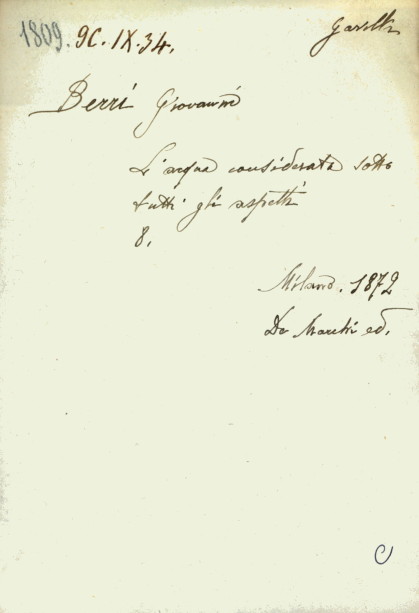 1809. 9C. IX. 34.
Berri Giovanni
L'acqua considerata sotto
tutti gli aspetti
8.
Milano. 1872
De Marchi ed.
C